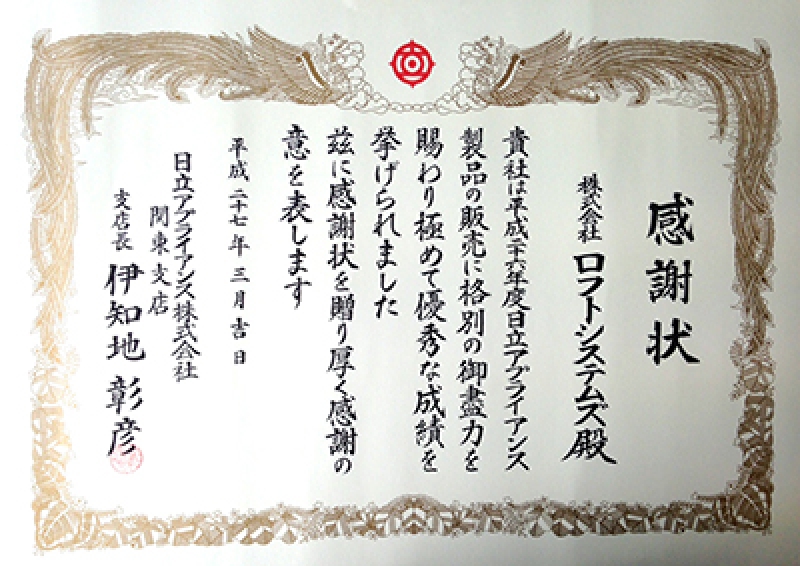 感謝状
株式会社 ロフトシステムズ殿
貴社は平成二十六年度日立アプライアンス
製品の販売に格別の御盡力を
賜わり極めて優秀な成績を
挙げられました
茲に感謝状を贈り厚く感謝の
意を表します
平成二十七年三月吉日
日立アプライアンス株式会社
関東支店
支店長 伊知地 彰彦